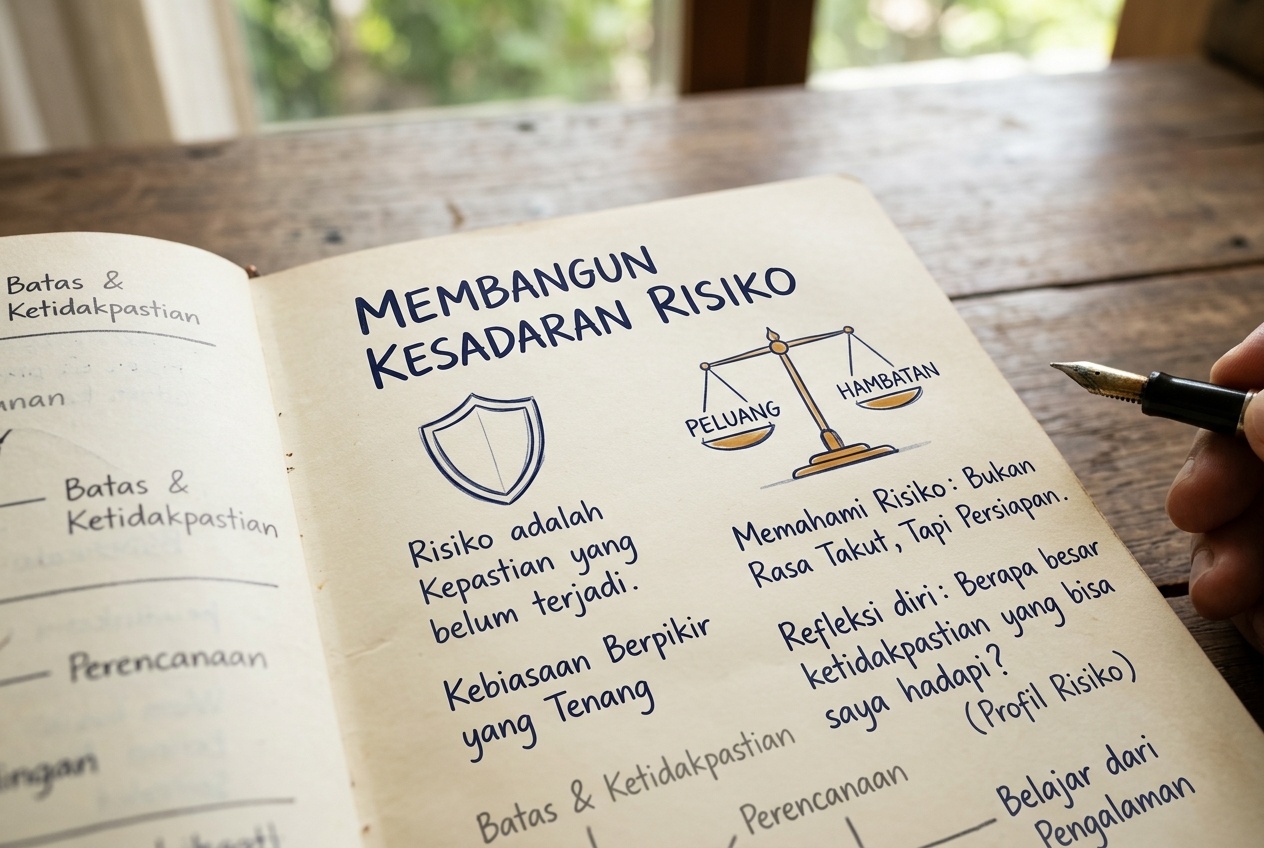 Batas &
Ketidakpastian
Batas &
Ketidakpastian
Perencanaan
MEMBANGUN
KESADARAN RISIKO
PELUANG
HAMBATAN
Risiko adalah
Kepastian yang
belum terjadi.
Kebiasaan Berpikir
yang Tenang
Memahami Risiko: Bukan
Rasa Takut, Tapi Persiapan.
Refleksi diri: Berapa besar
ketidakpastian yang bisa
saya hadapi?
(Profil Risiko)
Batas & Ketidakpastian
Perencanaan
Belajar dari
Pengalaman